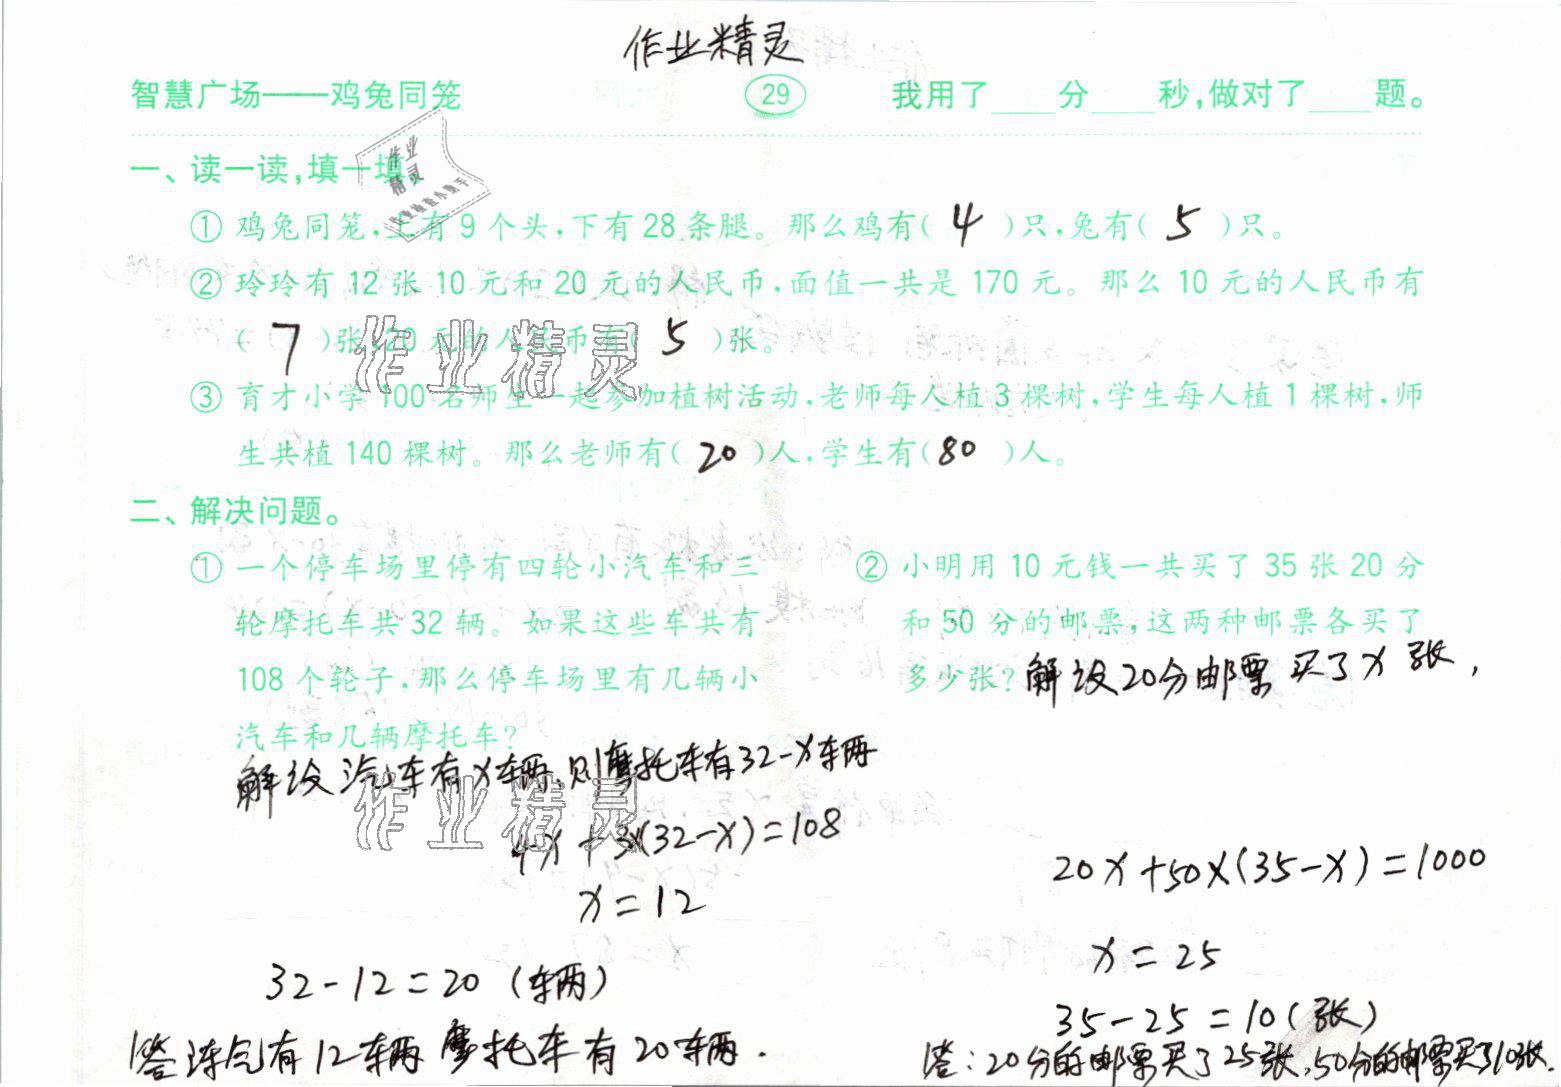 作业精灵
智慧广场——鸡兔同笼 29 我用了____分____秒,做对了____题。
一、读一读,填一填
① 鸡兔同笼,上有9个头,下有28条腿。那么鸡有( 4 )只,兔有( 5 )只。
② 玲玲有12张10元和20元的人民币,面值一共是170元。那么10元的人民币有
( 7 )张,20元的人民币有( 5 )张。
作业精灵
③ 育才小学100名师生一起参加植树活动,老师每人植3棵树,学生每人植1棵树,师
生共植140棵树。那么老师有( 20 )人,学生有( 80 )人。
二、解决问题。
① 一个停车场里停有四轮小汽车和三
轮摩托车共32辆。如果这些车共有
108个轮子,那么停车场里有几辆小
汽车和几辆摩托车?
解设汽车有x辆,则摩托车有32-x辆
作业精灵
4x+3×(32-x)=108
x=12
32-12=20(辆)
答:汽车有12辆 摩托车有20辆.
② 小明用10元钱一共买了35张20分
和50分的邮票,这两种邮票各买了
多少张? 解设20分邮票买了x张,
20x+50×(35-x)=1000
x=25
35-25=10(张)
答:20分的邮票买了25张,50分的邮票买了10张.